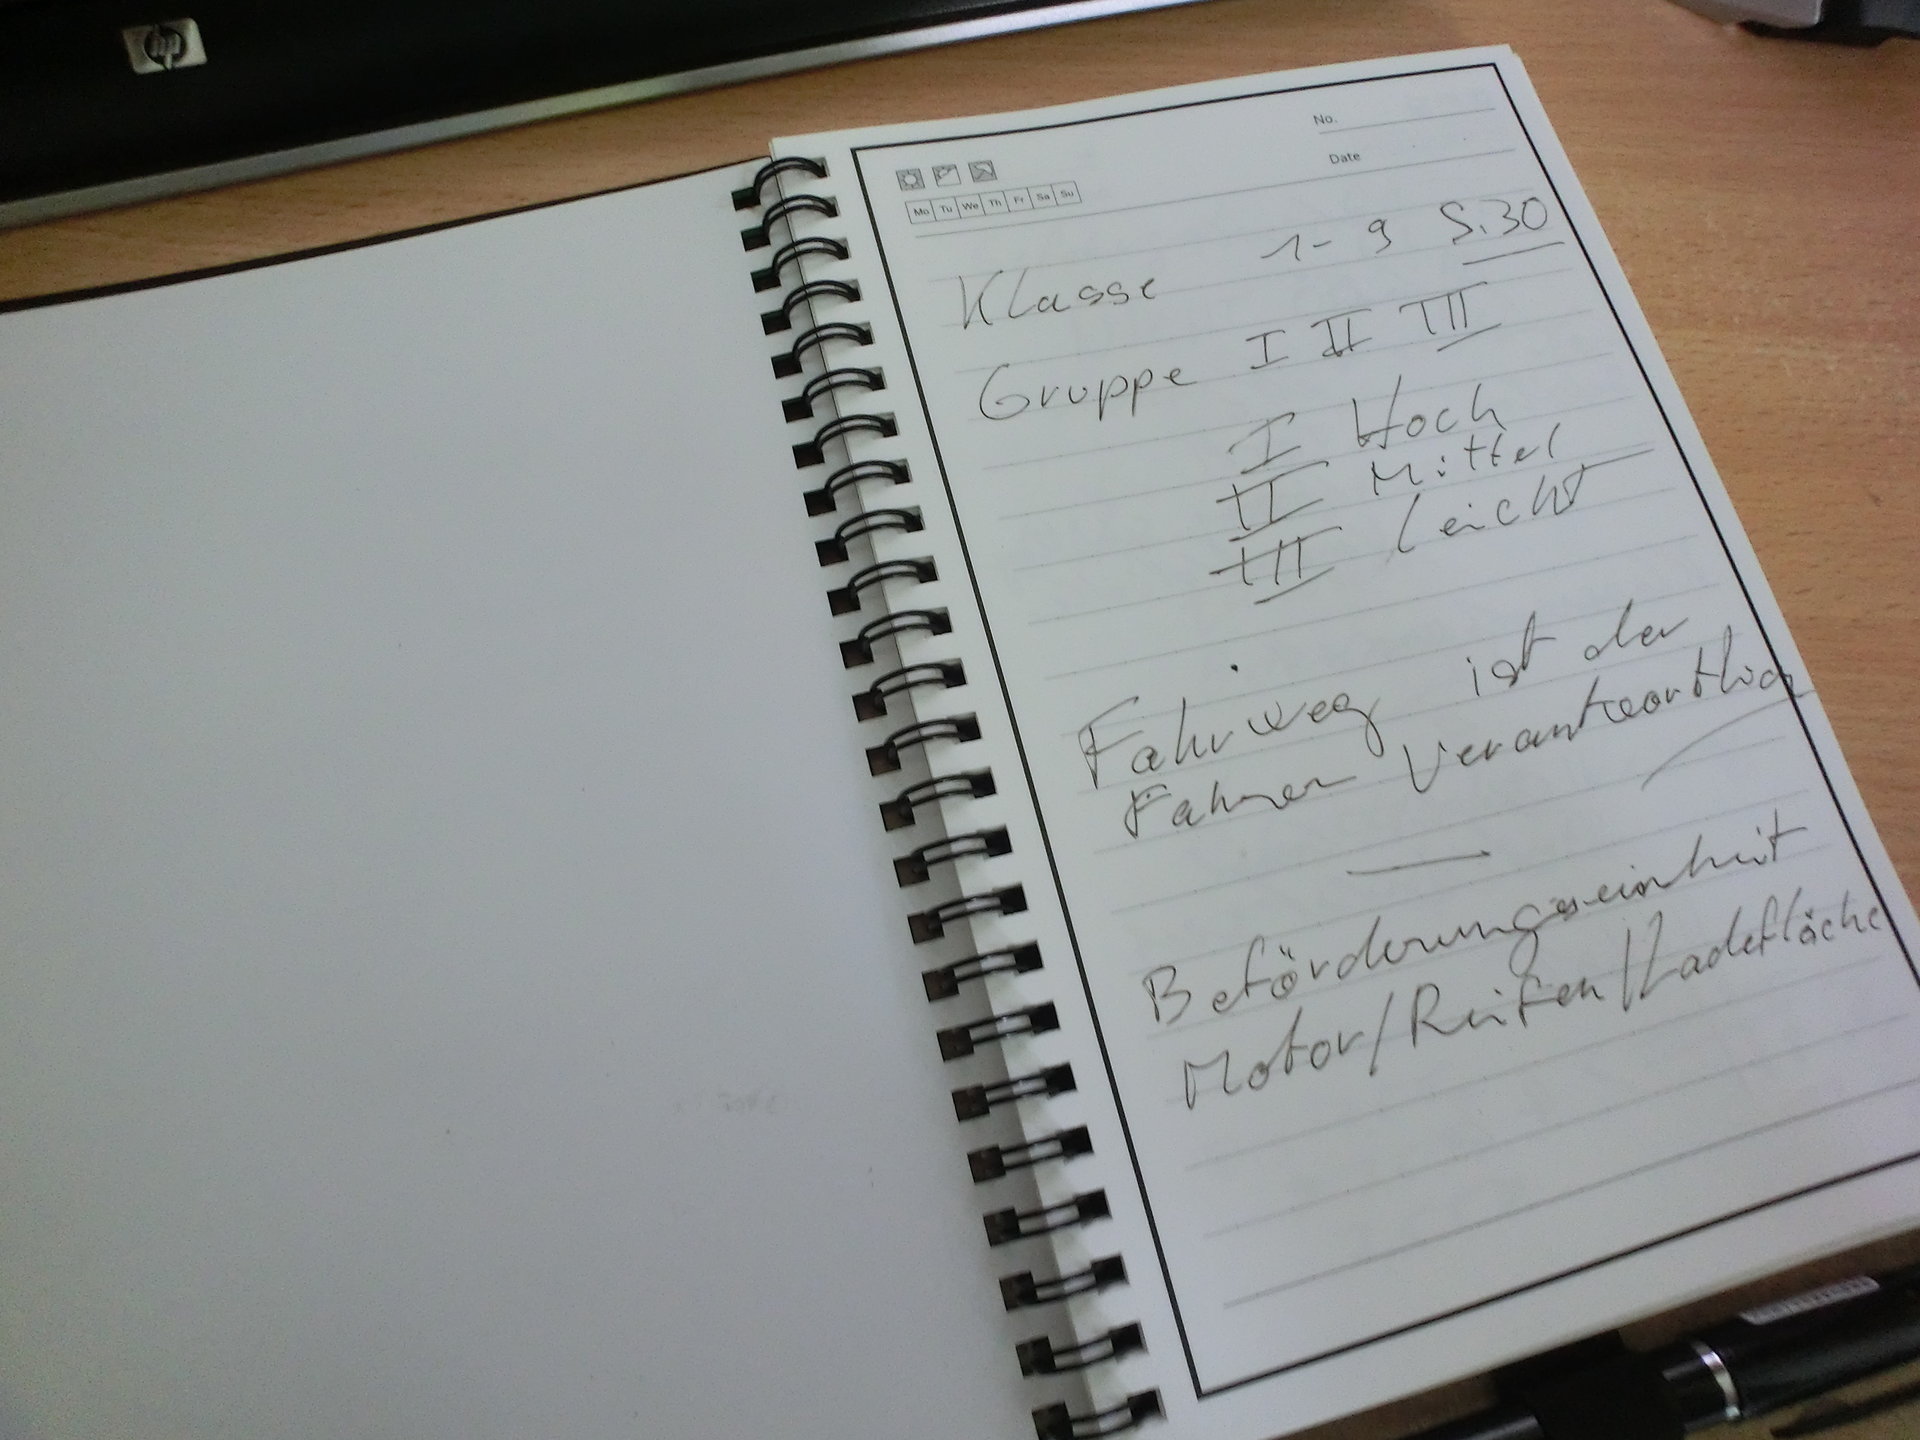 hp
No.
Date
Mo Tu We Th Fr Sa Su
Klasse 1-9 S.30
Gruppe I II III
I Hoch
II Mittel
III leicht
Fahrweg ist der
Fahrer Verantwortlich
Beförderungseinheit
Motor/Reifen/Ladefläche